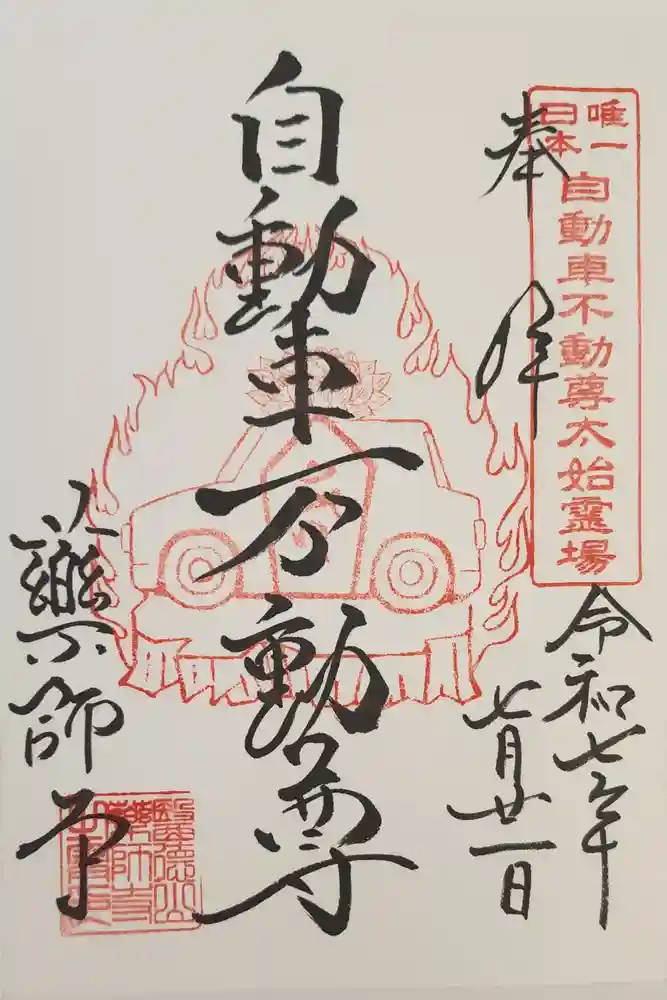 唯一
日本
自動車不動尊太始霊場
奉拝
令和七年
七月廿一日
自動車不動尊
藥師寺
醫徳山
薬師寺